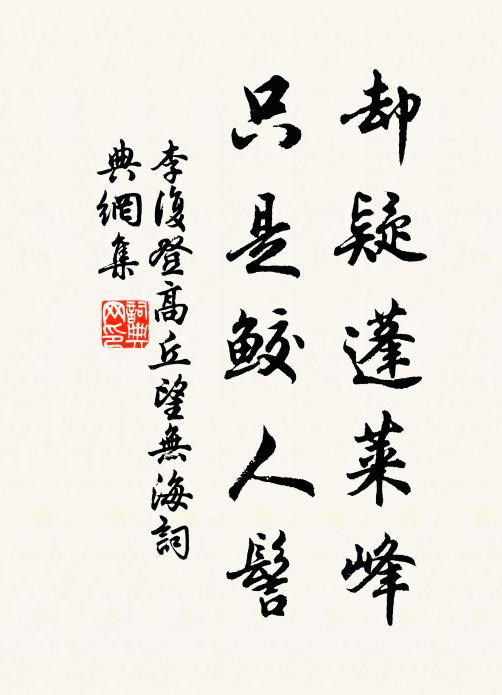 却疑蓬萊峰
只是鮫人髻
李復登高丘望無海詞
典網集
詞典
网印